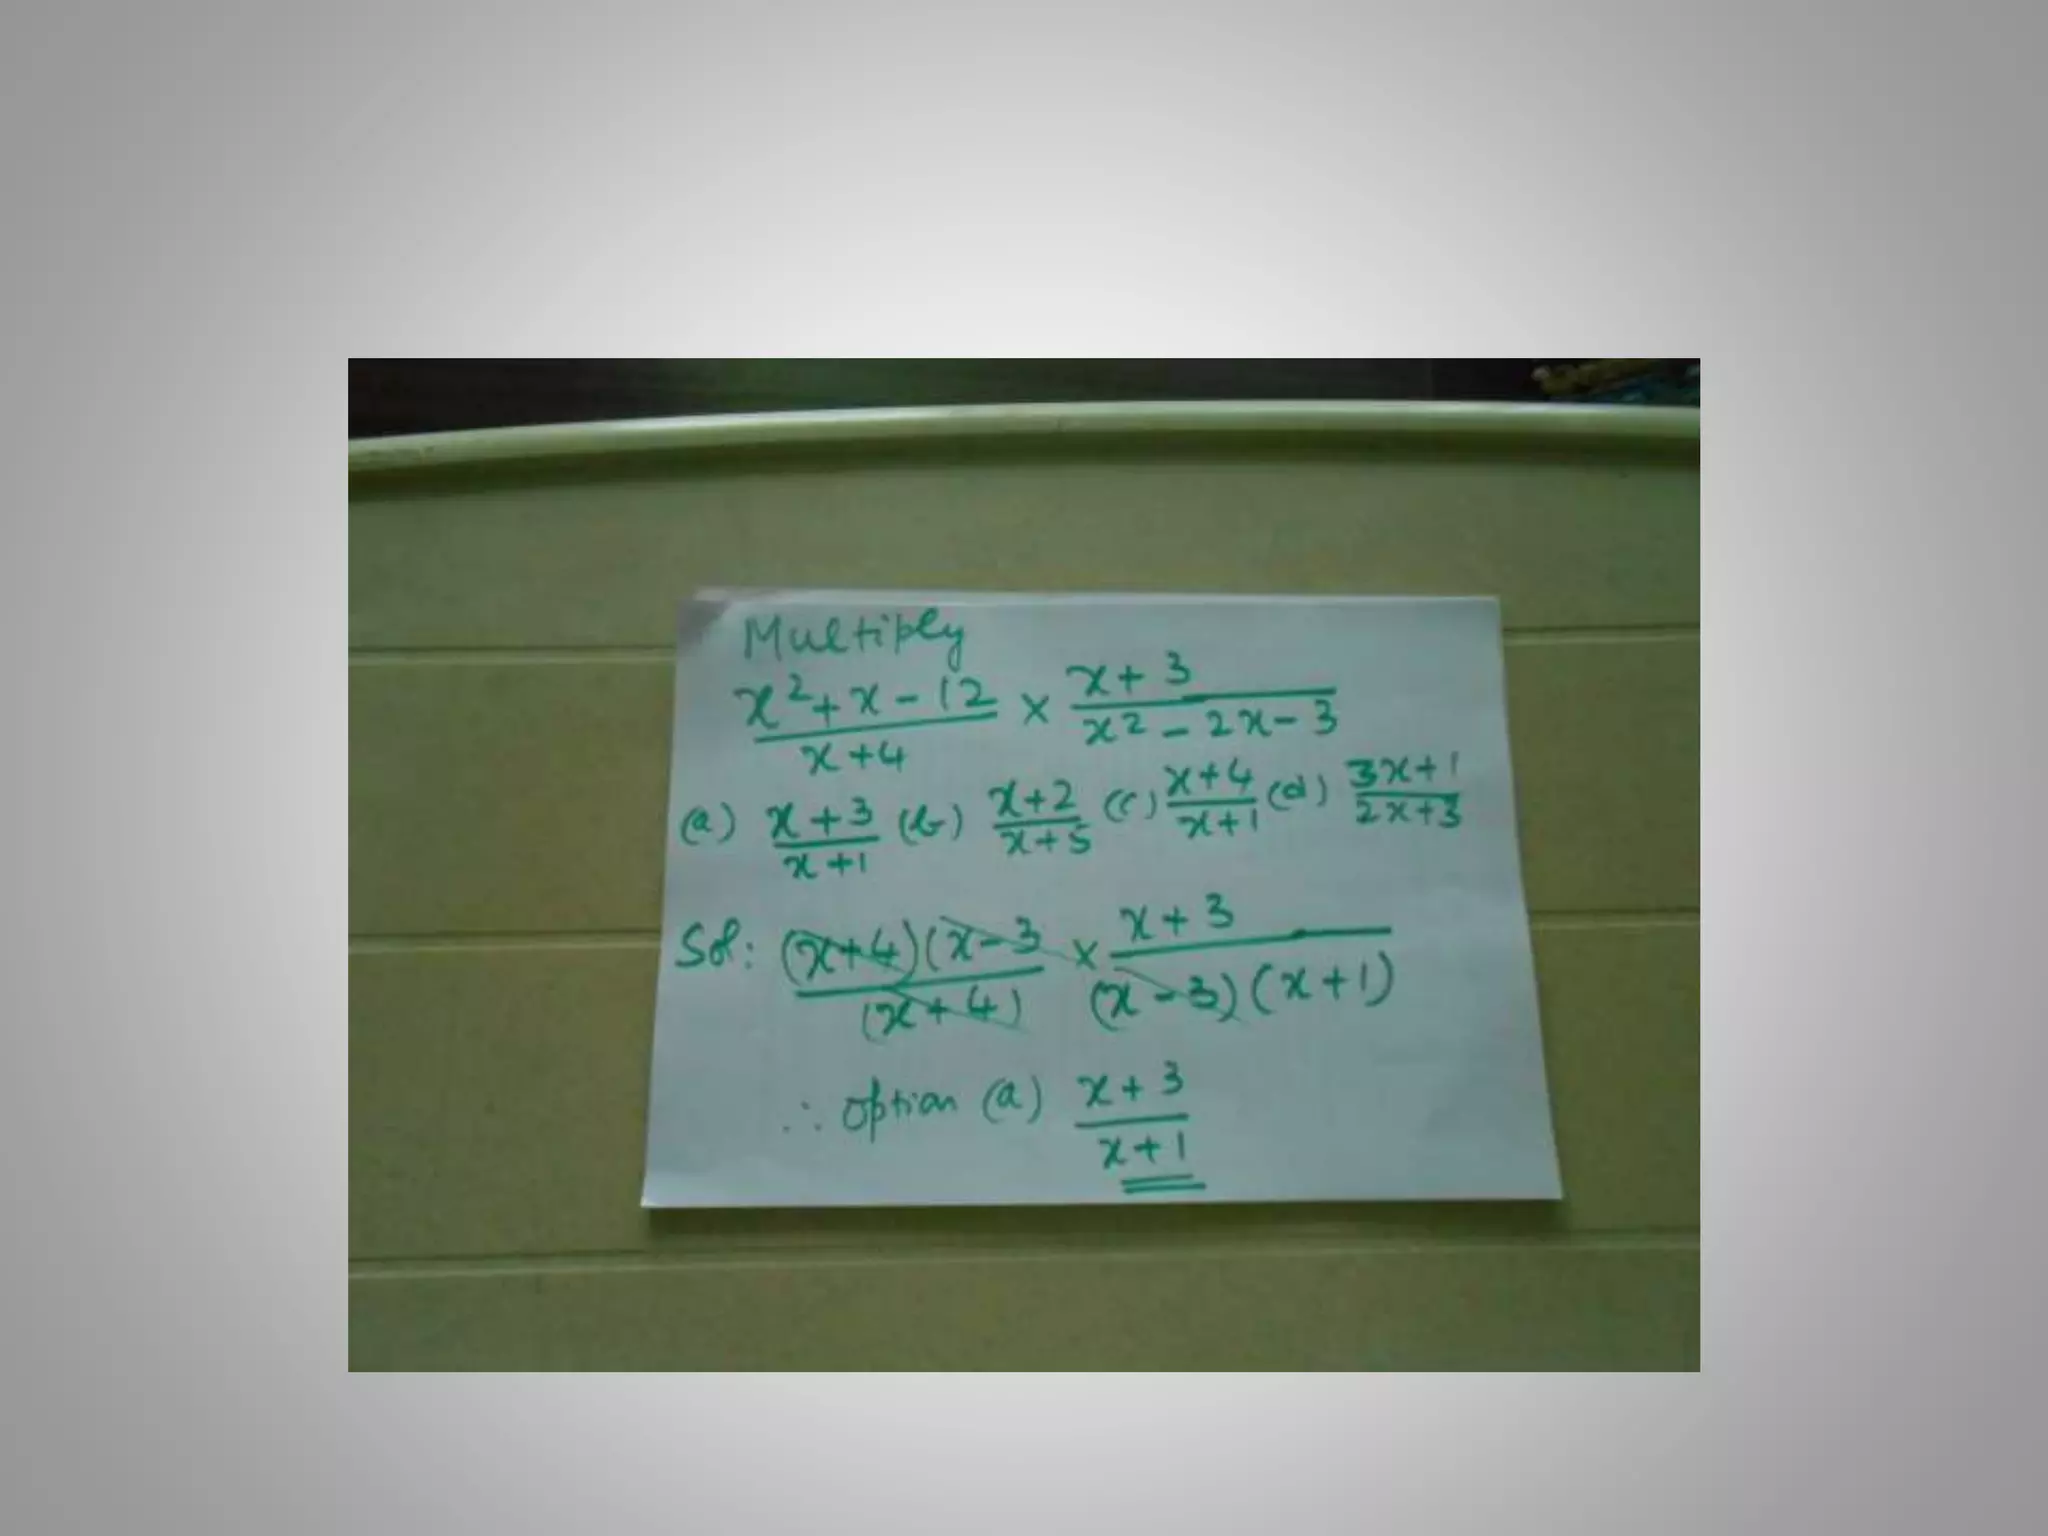 Multiply
x²+x-12 / x+4 × x+3 / x²-2x-3
(a) x+3 / x+1 (b) x+2 / x+5 (c) x+4 / x+1 (d) 3x+1 / 2x+3
Sol: (x+4)(x-3 / (x+4) × x+3 / (x-3)(x+1)
∴ option (a) x+3 / x+1